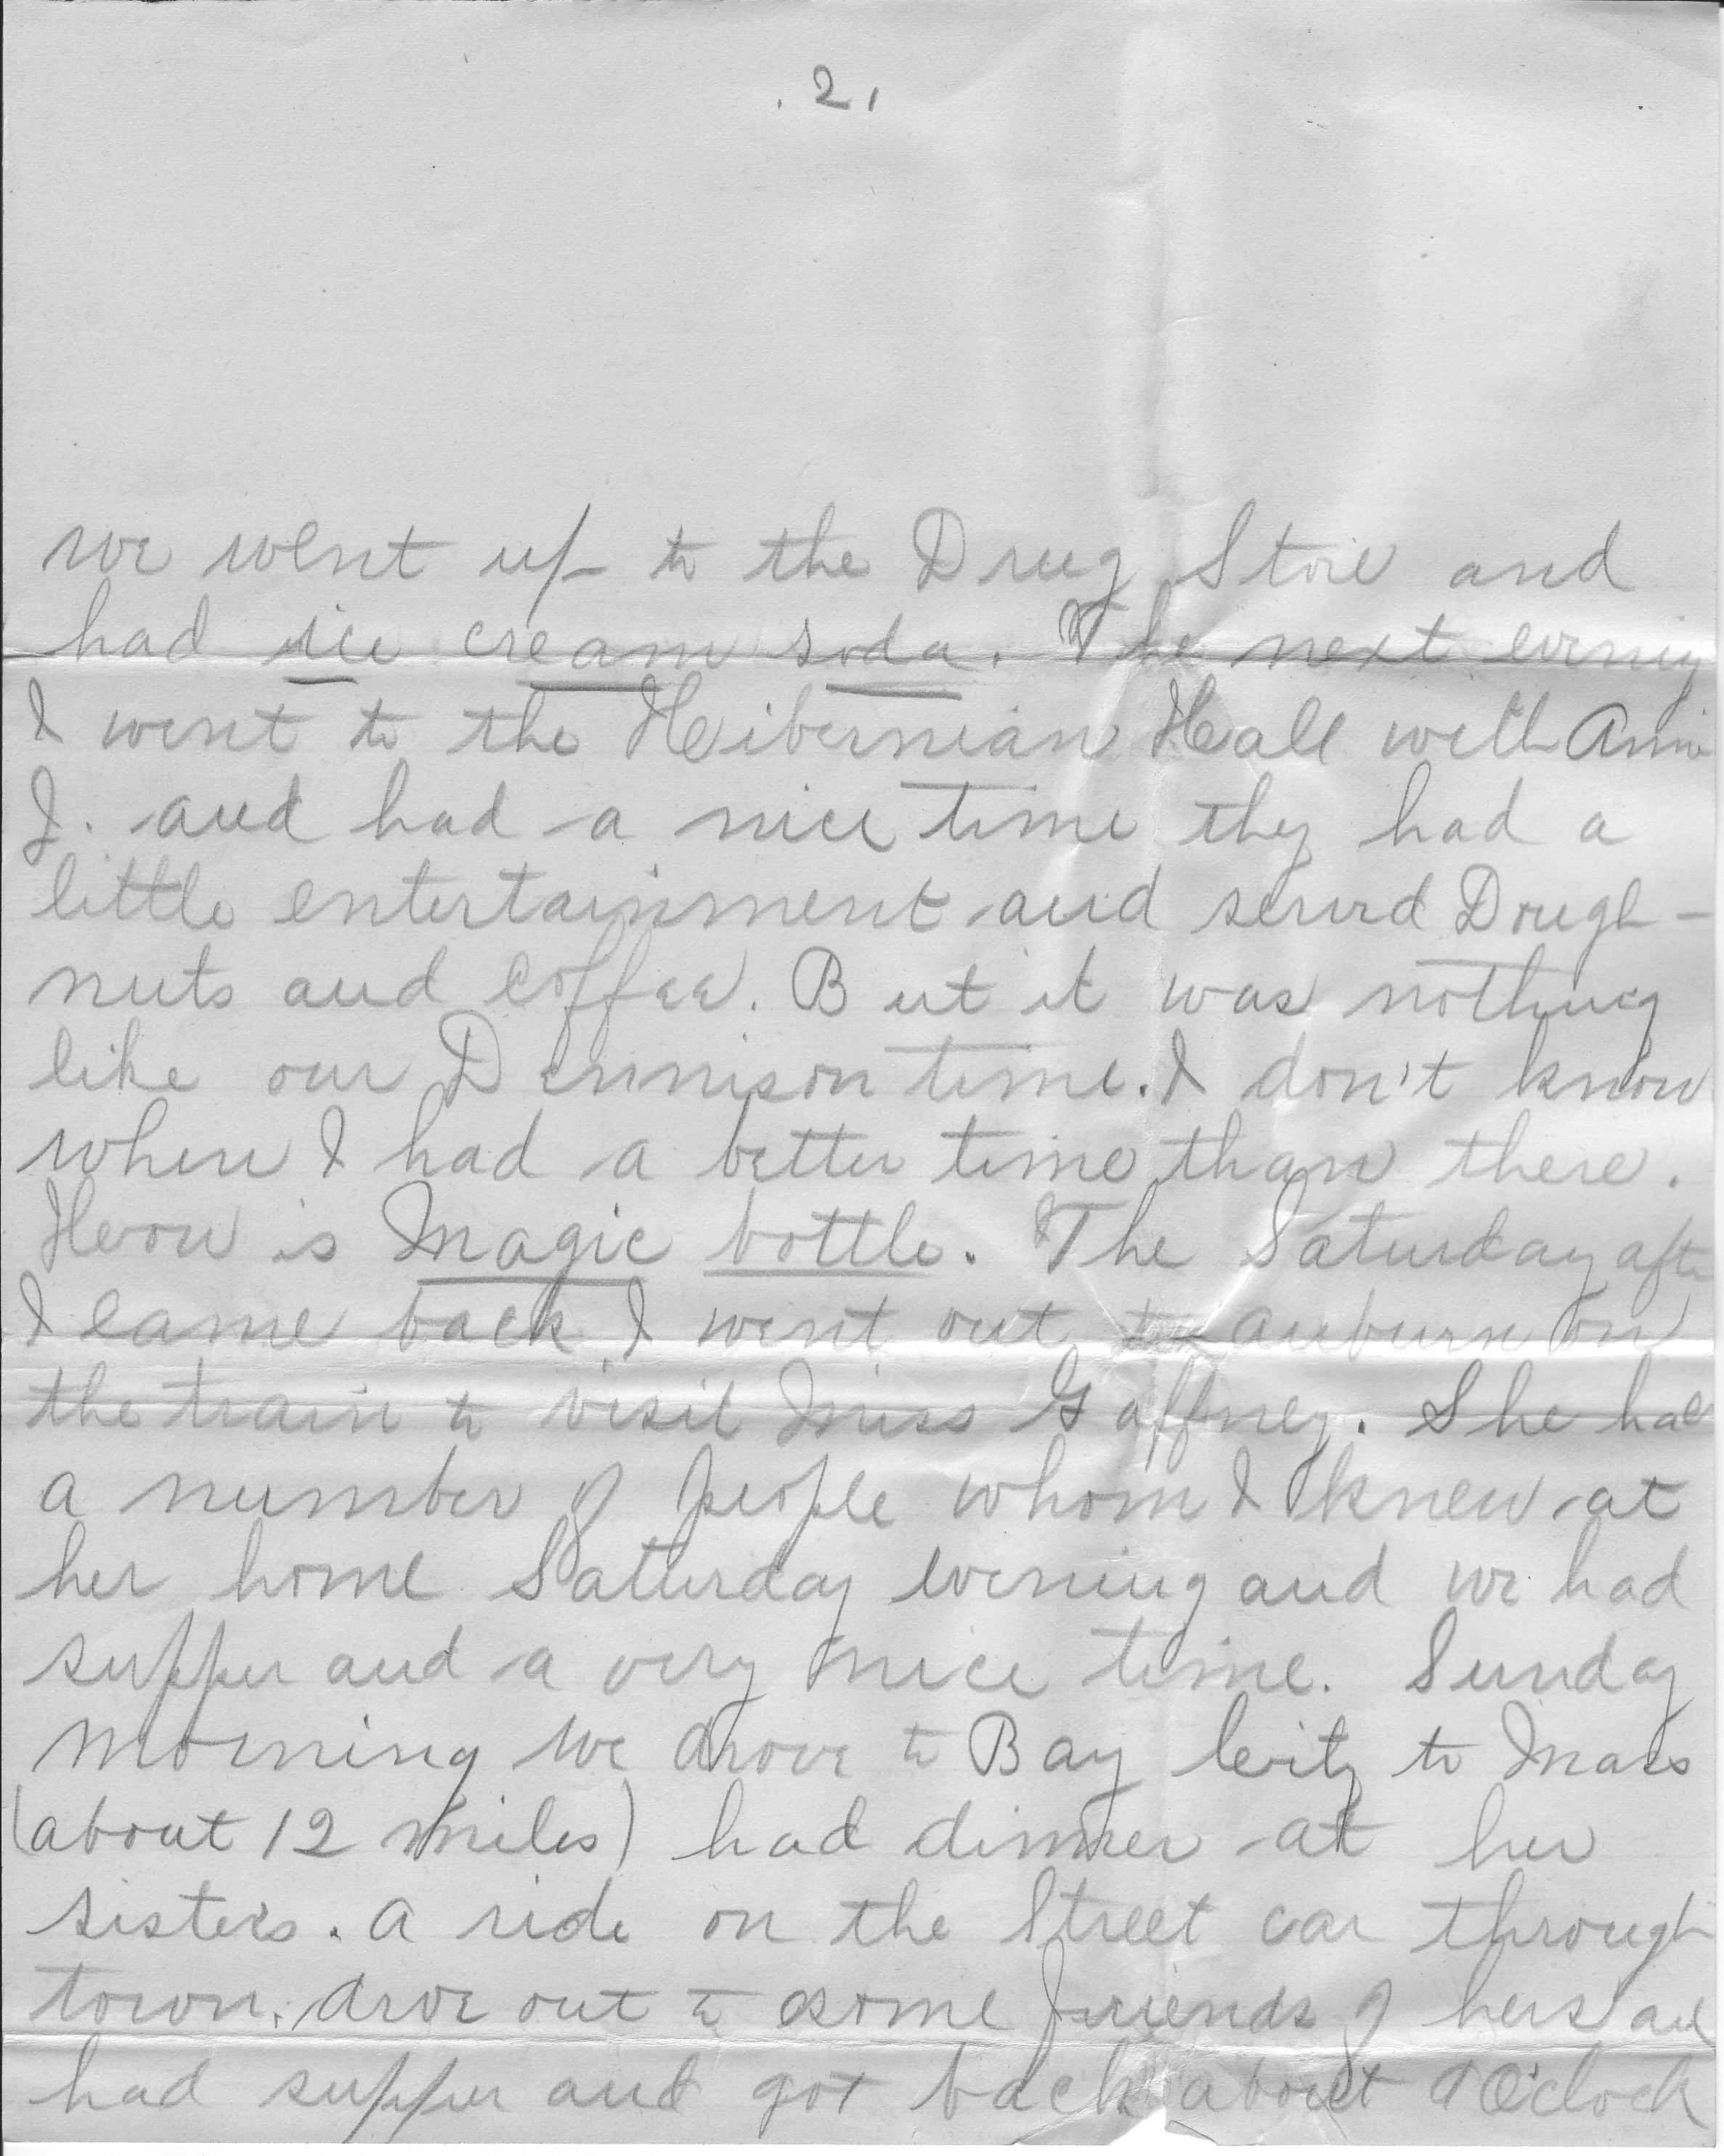 . 2.
we went up to the Drug Store and
had ice cream soda. The next evening
I went to the Heibernian Hall with Annie
J. and had a nice time they had a
little entertainment and served Dough-
nuts and Coffee. But it was nothing
like our Dennison time. I don't know
where I had a better time than there.
is Magic bottle. The Saturday after
I came back I went out to auburn on
the train to visit Miss Gaffney. She had
a number of people whom I knew at
her home Saturday evening and we had
supper and a very nice time. Sunday
morning we drove to Bay City to Mass
(about 12 miles) had dinner at her
sisters. A ride on the Street car through
town. drove out to some friends of hers and
had supper and got back about O'clock